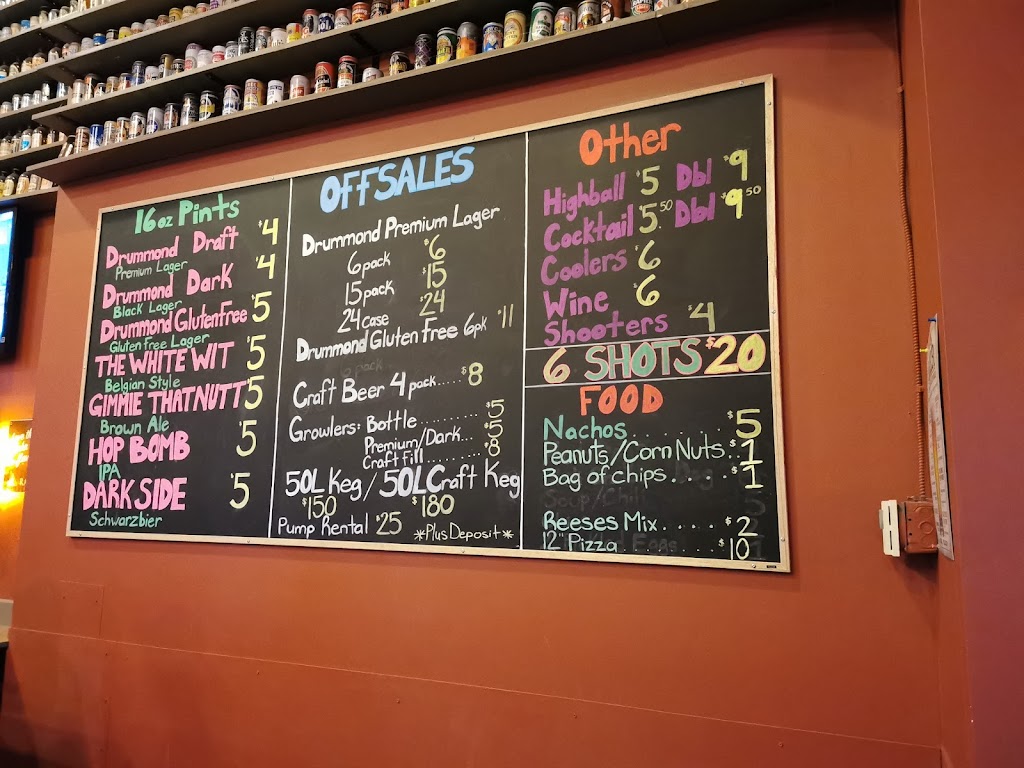 16oz Pints
Drummond Draft $4
Premium Lager
Drummond Dark $4
Black Lager
Drummond Gluten Free $5
Gluten free Lager
THE WHITE WIT $5
Belgian Style
GIMMIE THAT NUTT $5
Brown Ale
HOP BOMB 5
IPA
DARK SIDE $5
Schwarzbier
OFFSALES
Drummond Premium Lager
6 pack $6
15 pack $15
24 case $24
Drummond Gluten Free 6pk $11
Craft Beer 4 pack..... $8
Growlers: Bottle.......... $5
Premium/Dark... $5
Craft fill.......... $8
50L Keg / 50L Craft Keg
$150 $180
Pump Rental $25 *Plus Deposit*
Other
Highball $5 Dbl $9
Cocktail 5.50 Dbl $9.50
Coolers $6
Wine $6
Shooters $4
6 SHOTS $20
FOOD
Nachos.......... $5
Peanuts/Corn Nuts.. $1
Bag of chips..... $1
Soup/Chili 5
Reeses Mix..... $2
12" Pizza $10